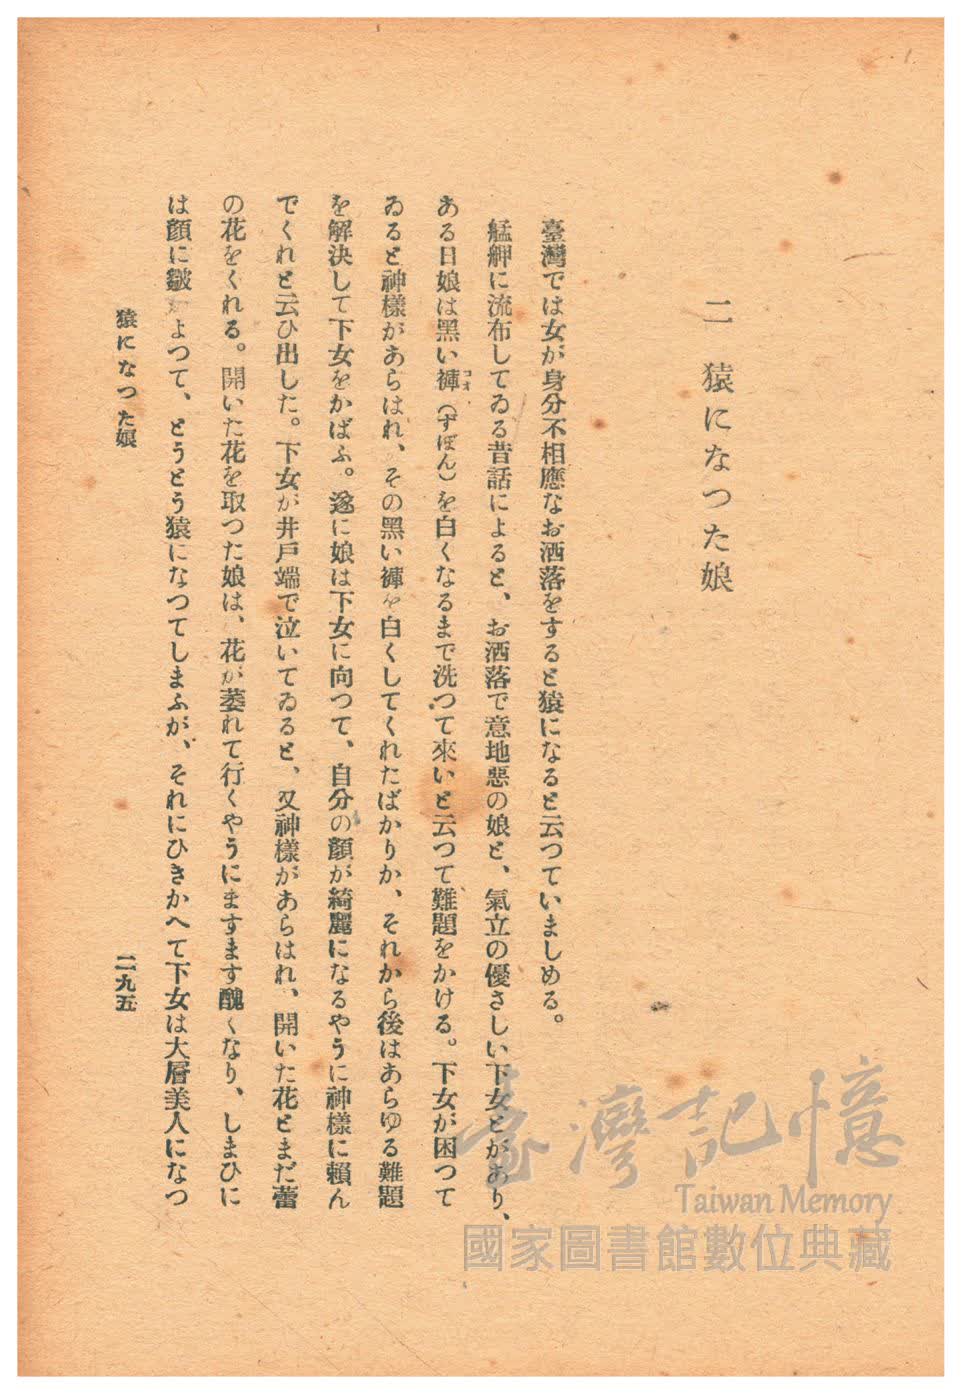 二　猿になつた娘
臺灣では女が身分不相應なお洒落をすると猿になると云つていましめる。
艋舺に流布してゐる昔話によると、お洒落で意地惡の娘と、氣立の優さしい下女とがあり、
ある日娘は黑い褲（ずぼん）を白くなるまで洗つて來いと云つて難題をかける。下女が困つて
コオ
ゐると神樣があらはれ、その黑い褲を白くしてくれたばかりか、それから後はあらゆる難題
を解決して下女をかばふ。遂に娘は下女に向つて、自分の顏が綺麗になるやうに神樣に賴ん
でくれと云ひ出した。下女が井戸端で泣いてゐると、又神樣があらはれ、開いた花とまだ蕾
の花をくれる。開いた花を取つた娘は、花が萎れて行くやうにますます醜くなり、しまひに
は顏に皺がよつて、とうとう猿になつてしまふが、それにひきかへて下女は大層美人になつ
猿になつた娘
二九五
臺灣記憶
Taiwan Memory
國家圖書館數位典藏